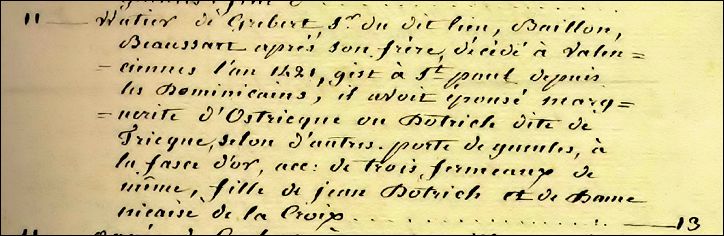 11 — Watier de Grebert, Sr. du dit lieu, Baillon,
Beaussart après son frère, décédé à valen=
=ciennes l'an 1421, gist à St. paul depuis
les Dominicains, il avoit épousé marg=
=uerite d'Ostricque ou Dotrich dite de
Tricque, selon d'autres. porte de gueules, à
la fasce d'or, acc: de trois fermeaux de
même, fille de jean Dotrich et de Dame
nicaise de la Croix. — 13